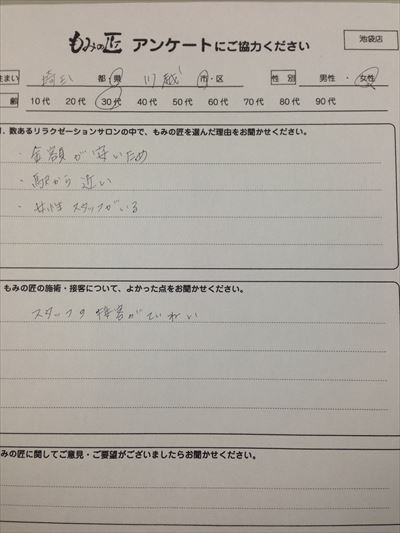 もみの匠 アンケートにご協力ください 池袋店
住まい 埼玉 都・県 川越 市・区 性別 男性・女性
齢 10代 20代 30代 40代 50代 60代 70代 80代 90代
1. 数あるリラクゼーションサロンの中で、もみの匠を選んだ理由をお聞かせください。
・金額が安いため
・駅から近い
・女性スタッフがいる
もみの匠の施術・接客について、よかった点をお聞かせください。
スタッフの接客がていねい
みの匠に関してご意見・ご要望がございましたらお聞かせください。